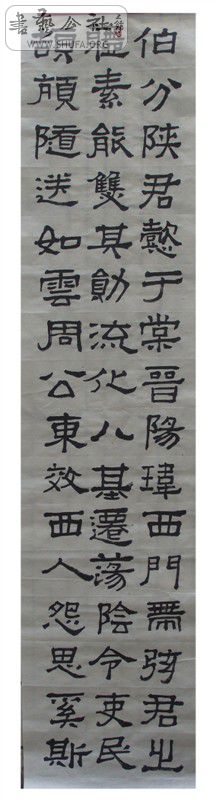 書藝公社
WWW.SHUFAJ.ORG
伯分陕君懿于棠晉陽瑋西門帶弦君之
素能雙其勛流化八基遷蕩陰令吏民
頡頏隨送如雲周公東效西人怨思奚斯